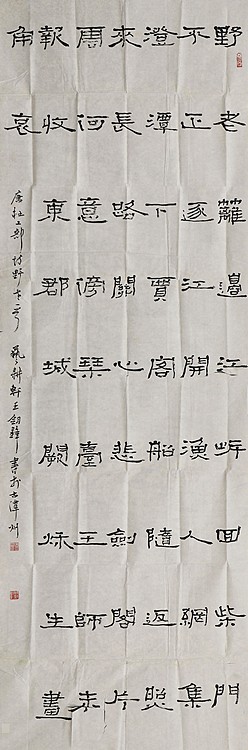 野老籬邊江岸回柴門
不正逐江開漁人網集
澄潭下賈客船隨返照
來長路關心悲劍閣片
雲何意傍琹臺王師未
報收東郡城闕秋生畫
角哀
唐杜工部詩野老一首 藝耕軒王書於古潭州